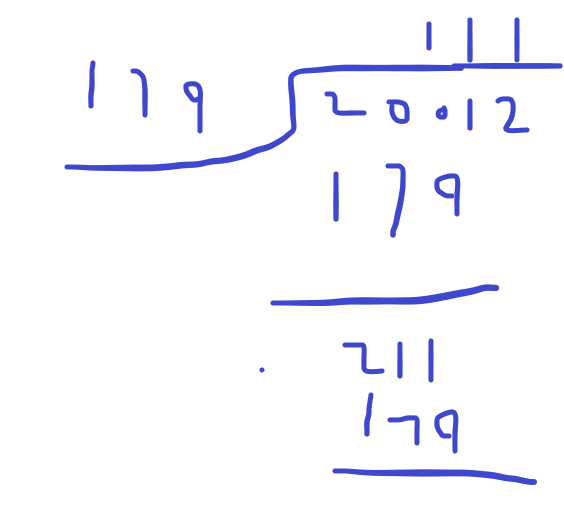 111
179 20.12
179
211
179